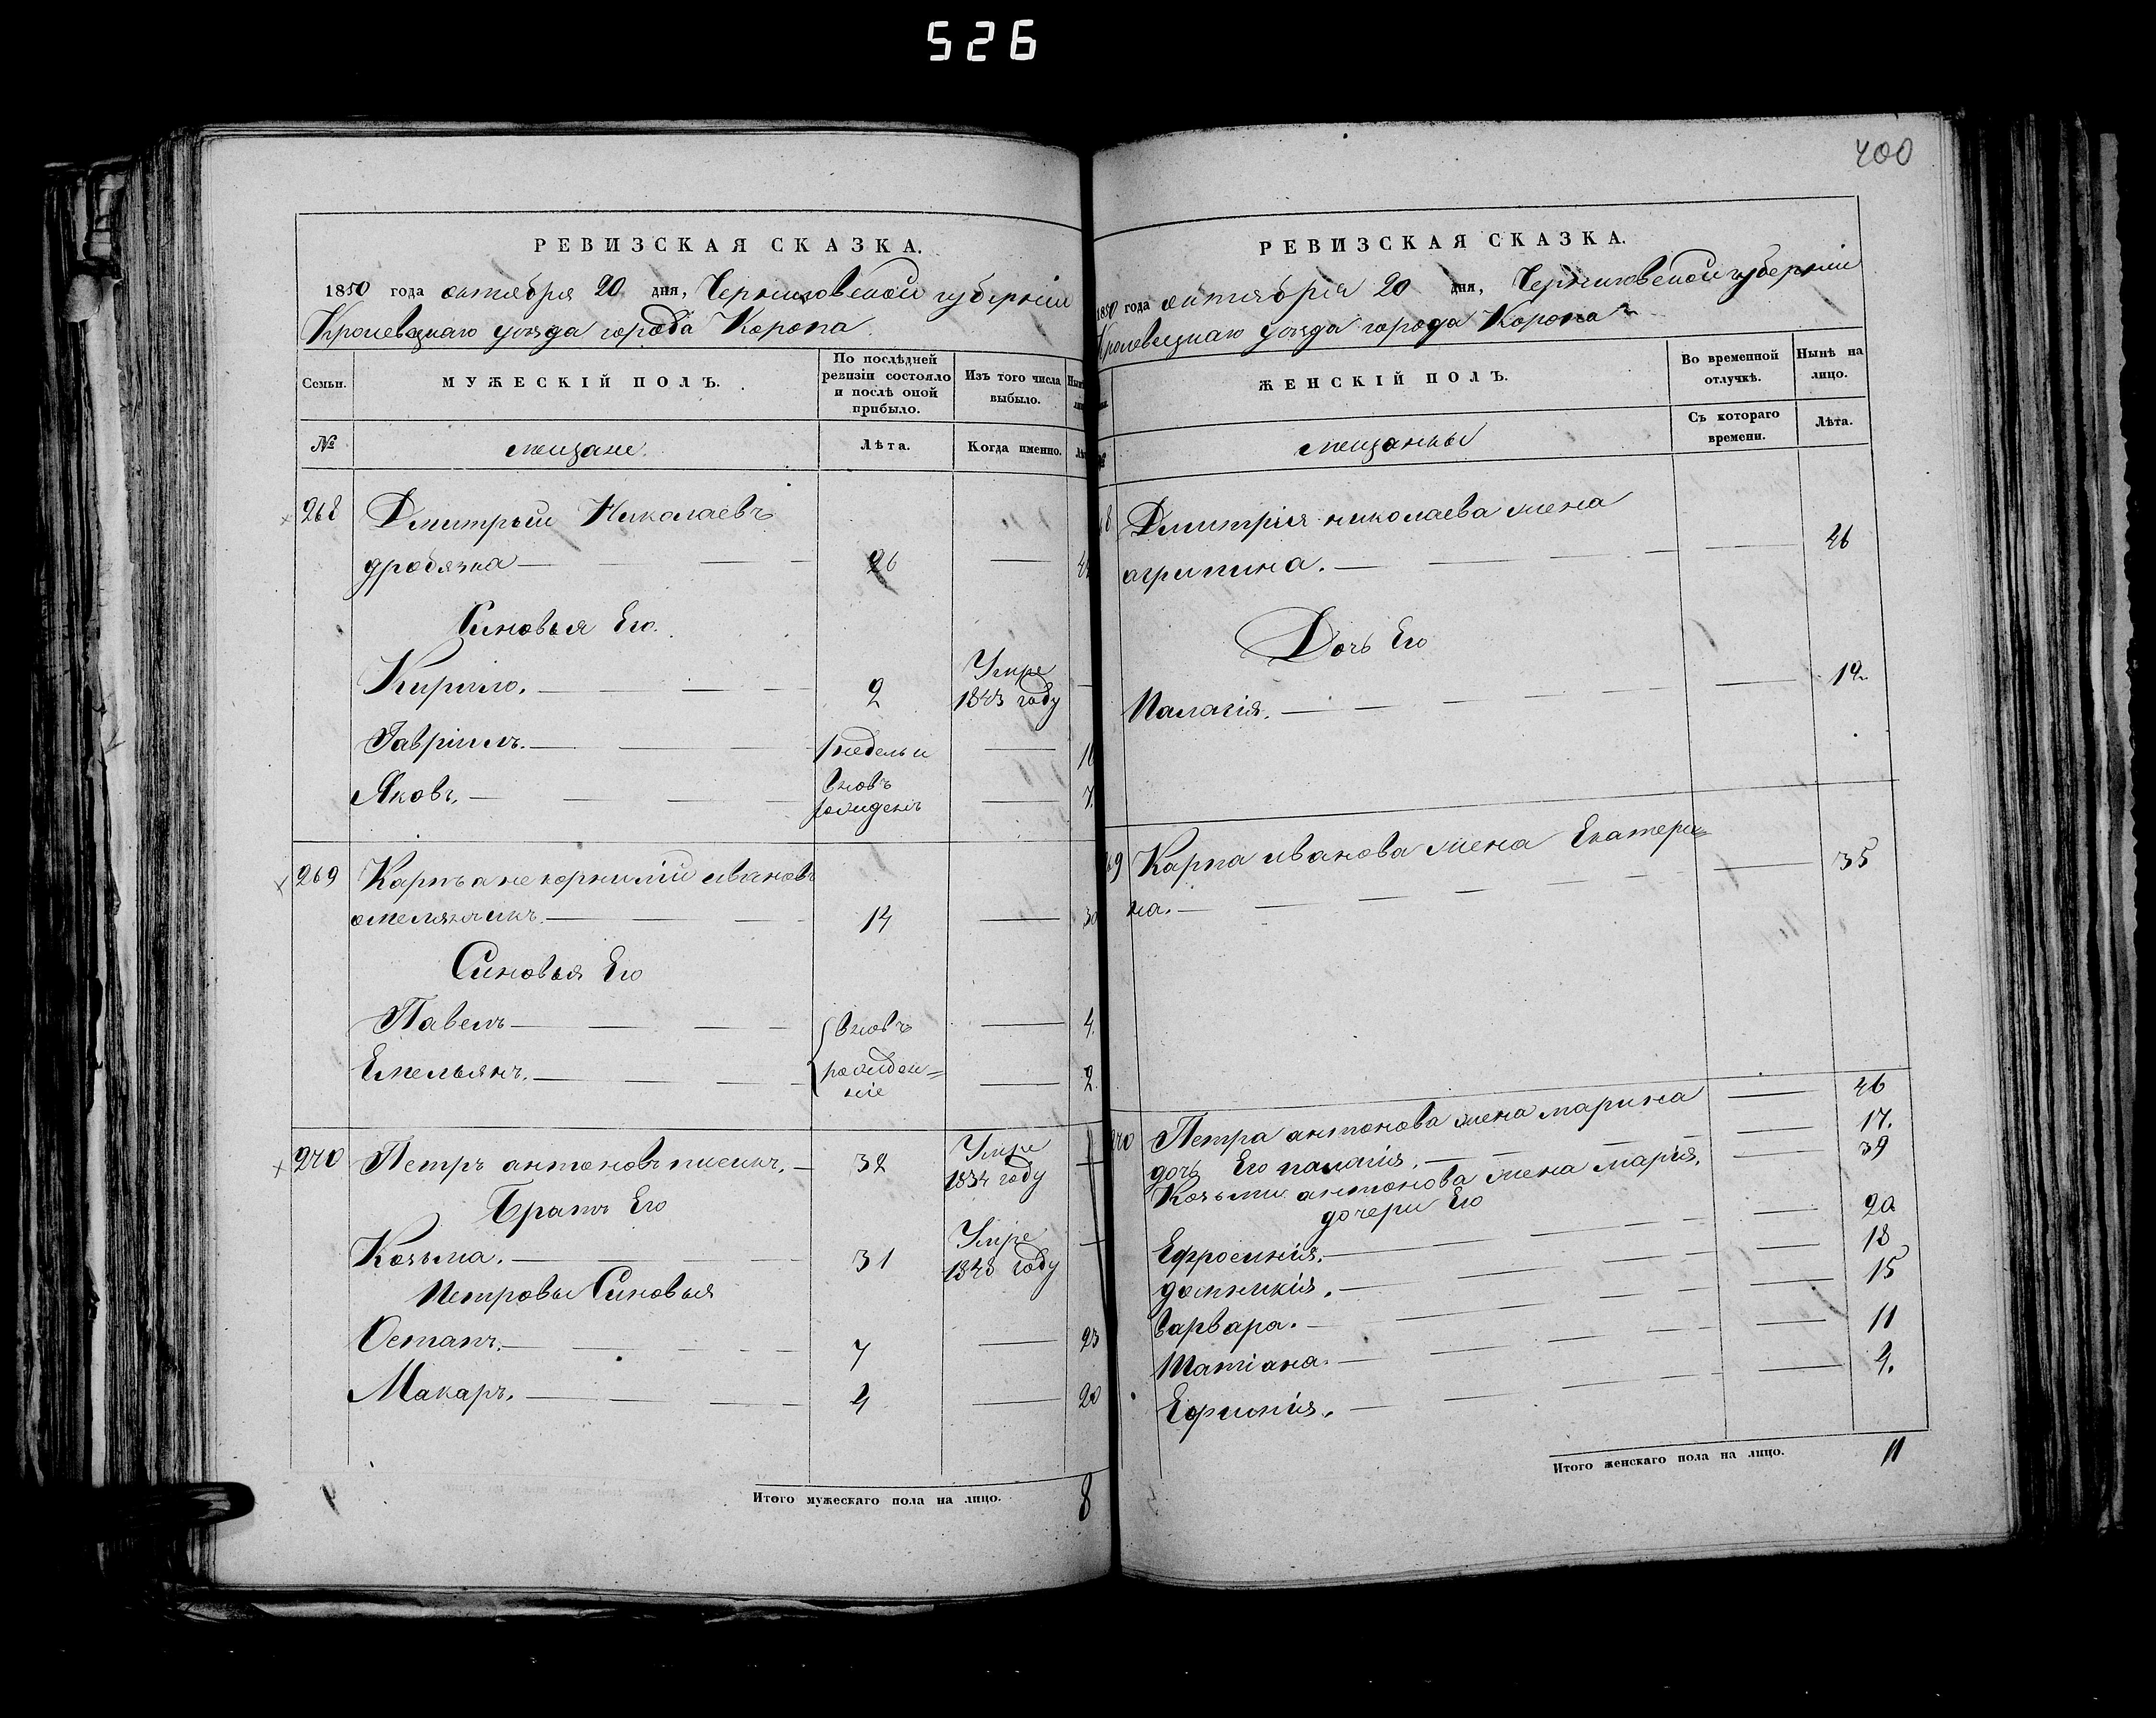 526
400
РЕВИЗСКАЯ СКАЗКА.
1850 года октября 20 дня, Черниговской губерніи
Кролевецкаго уезда города Коропа
Семьи.
МУЖЕСКІЙ ПОЛЪ.
По послѣдней ревизіи состояло и послѣ оной прибыло.
Изъ того числа выбыло.
№
мещане.
Лѣта.
Когда именно.
268 Дмитрый Николаевъ
дробязка 26
Синовья Его.
Кирило. 2 Умре 1843 году
Гавріилъ. 1 недельи
Яковъ. вновъ рожденъ 7
269 Карпъ а не корнилій ивановъ
омелянчикъ. 14 30
Синовья Его
Павелъ вновъ 4.
Емельянъ. рожден=ніе 2.
270 Петръ антоновъ 32 Умре 1834 году
Братъ Его
Козьма. 31 Умре 1848 году
Петровы Синовья
Остапъ. 7 23
Макаръ. 4 20
Итого мужескаго пола на лицо. 8
РЕВИЗСКАЯ СКАЗКА.
1850 года октября 20 дня, Черниговской губерніи
Кролевецкаго уезда города Коропа
ЖЕНСКІЙ ПОЛЪ.
Во временной отлучкѣ.
Нынѣ на лицо.
мещанки
Съ котораго времени.
Лѣта.
Дмитрія николаева жена
агрипина. 46
Дочь Его
Палагія. 12
69 Карпа иванова жена Екатери=
на. 35
270 Петра антонова жена марина 46
дочь Его палагія. 17.
Козьми антонова жена марія. 39
дочери Его
Ефросинія. 20
домникія. 18
варвара. 15
Татіана. 11
Ефимія. 4.
Итого женскаго пола на лицо. 11